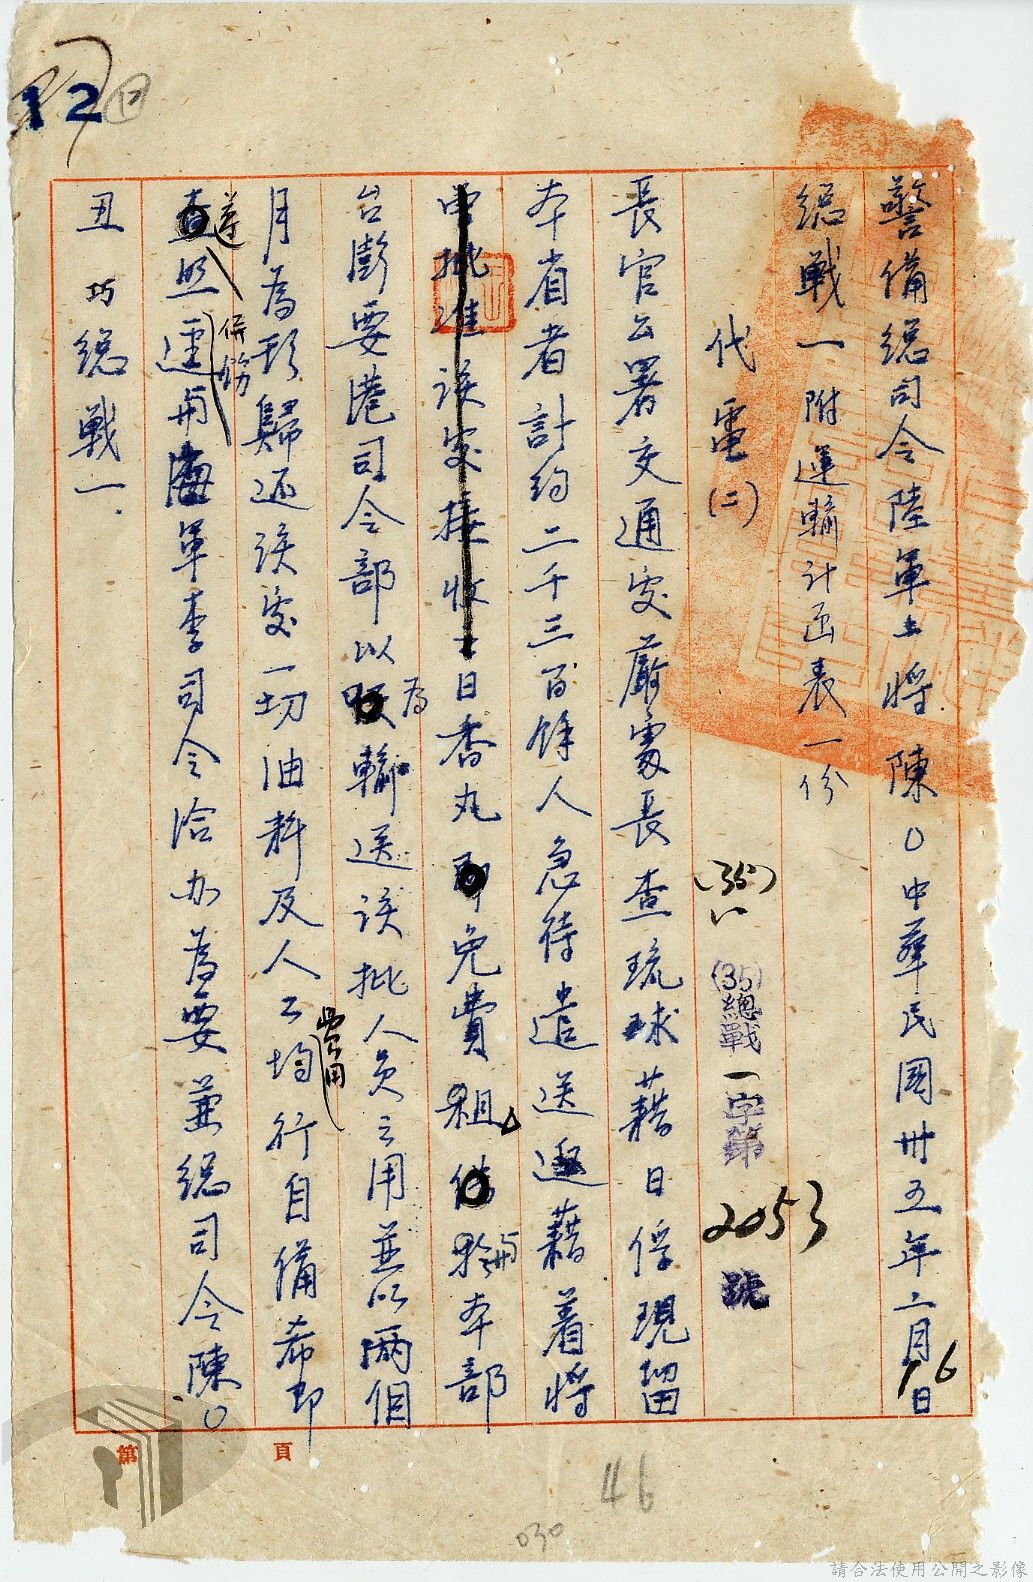 警備總司令陸軍上將 陳○中華民國卅五年二月16日
總戰一附運輸計画表一份
代電(二)
(35)
(35)總戰一字第 2053 號
長官公署交通處嚴處長查琉球藉日俘現留
本省者計約二千三百餘人急待遣送返藉着將
日香丸 免費租 與本部
台澎要港司令部以為輸送該批人員之用並以兩個
月為形歸还該處一切油料及人工費用均行自備希即
遵照逕與海軍李司令洽办為要兼總司令陳○
丑 巧總戰一.
第 頁
12
46
030
請合法使用公開之影像